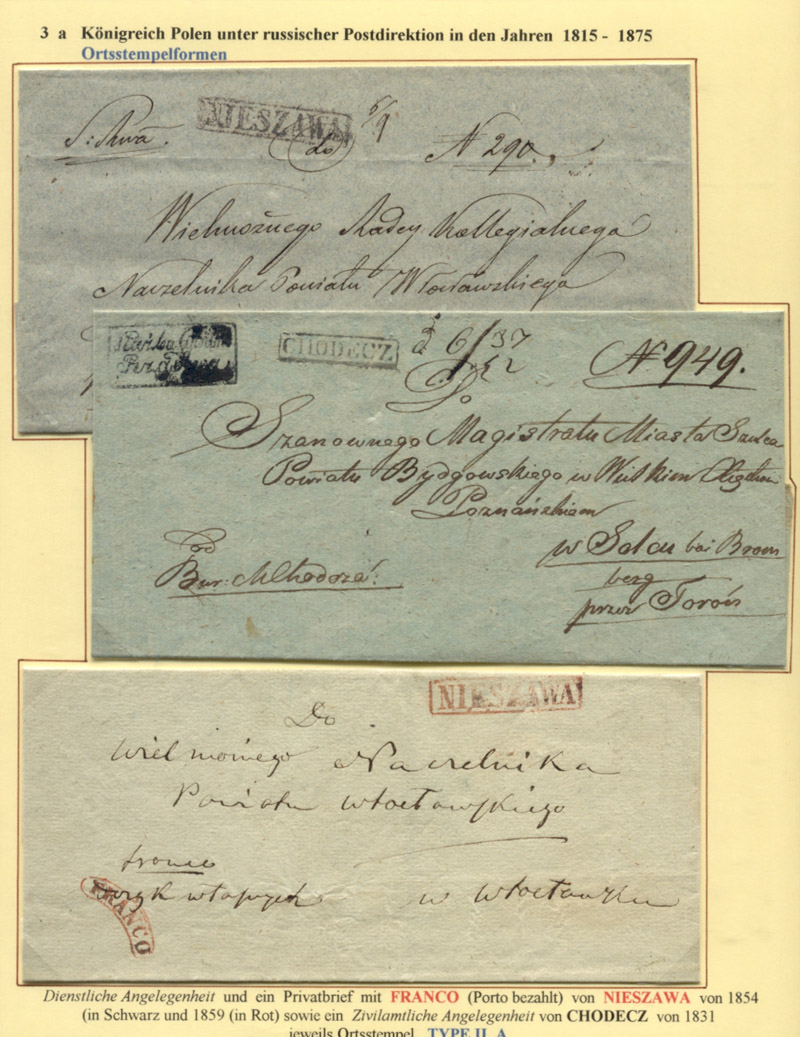 3 a Königreich Polen unter russischer Postdirektion in den Jahren 1815 - 1875
Ortsstempelformen
NIESZAWA
6/9
do
N 290.
Wielmożnego Radcy Kollegialnego
Naczelnika Powiatu
CHODECZ
6/37
Do
N 949.
Szanownego Magistratu Miasta
Powiatu Bydgowskiego w
Poznańskiem
od
w Solcu bei Brom
berg
przez Toroń
NIESZAWA
Do
Wielmożnego Naczelnika
Powiatu Włocławskiego
franco
w Włocławku
FRANCO
Dienstliche Angelegenheit und ein Privatbrief mit FRANCO (Porto bezahlt) von NIESZAWA von 1854
(in Schwarz und 1859 (in Rot) sowie ein Zivilamtliche Angelegenheit von CHODECZ von 1831
jeweils Ortsstempel TYPE II A